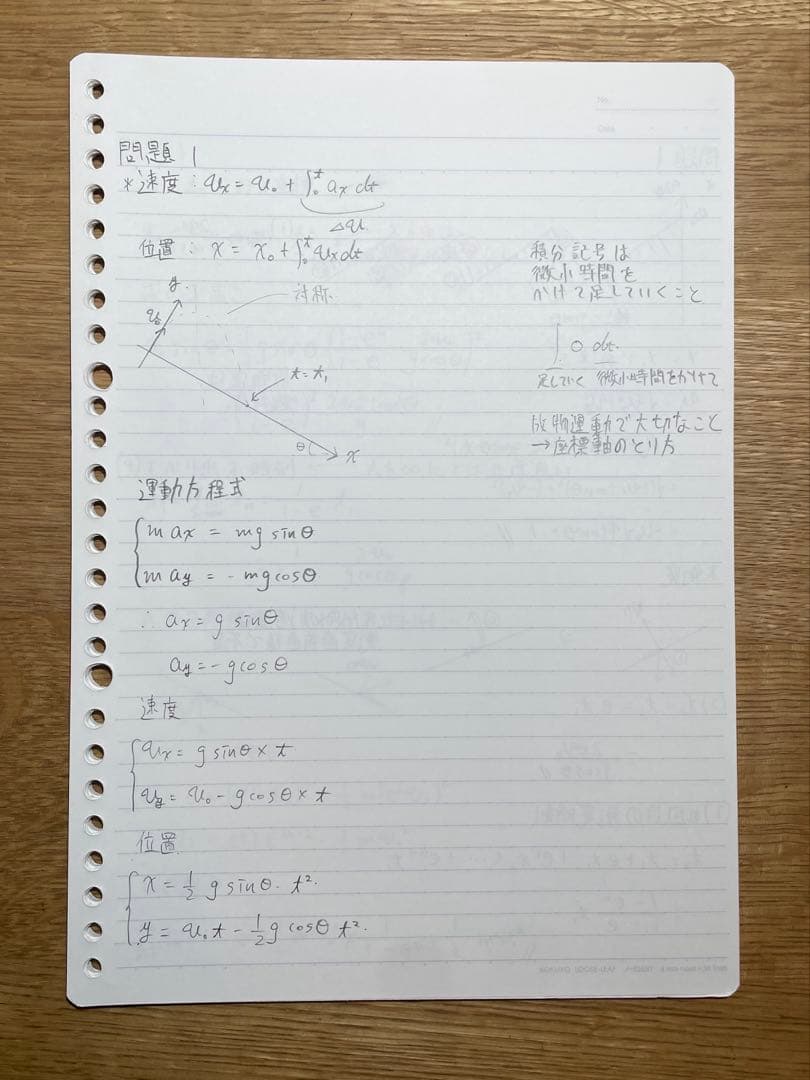 No.
Date
問題 1
*速度：vx = v₀ + ∫₀ᵗ ax dt
Δv
位置：x = x₀ + ∫₀ᵗ vx dt
y
v₀
対称
t = t₁
θ
x
積分記号は
微小時間を
かけて足していくこと
∫ ○ dt.
足していく 微小時間をかけて
放物運動で大切なこと
→座標軸のとり方
運動方程式
max = mg sinθ
may = - mg cosθ
∴ ax = g sinθ
ay = - g cosθ
速度
vx = g sinθ × t
vy = v₀ - g cosθ × t
位置
x = 1/2 g sinθ・t².
y = v₀t - 1/2 g cosθ t².